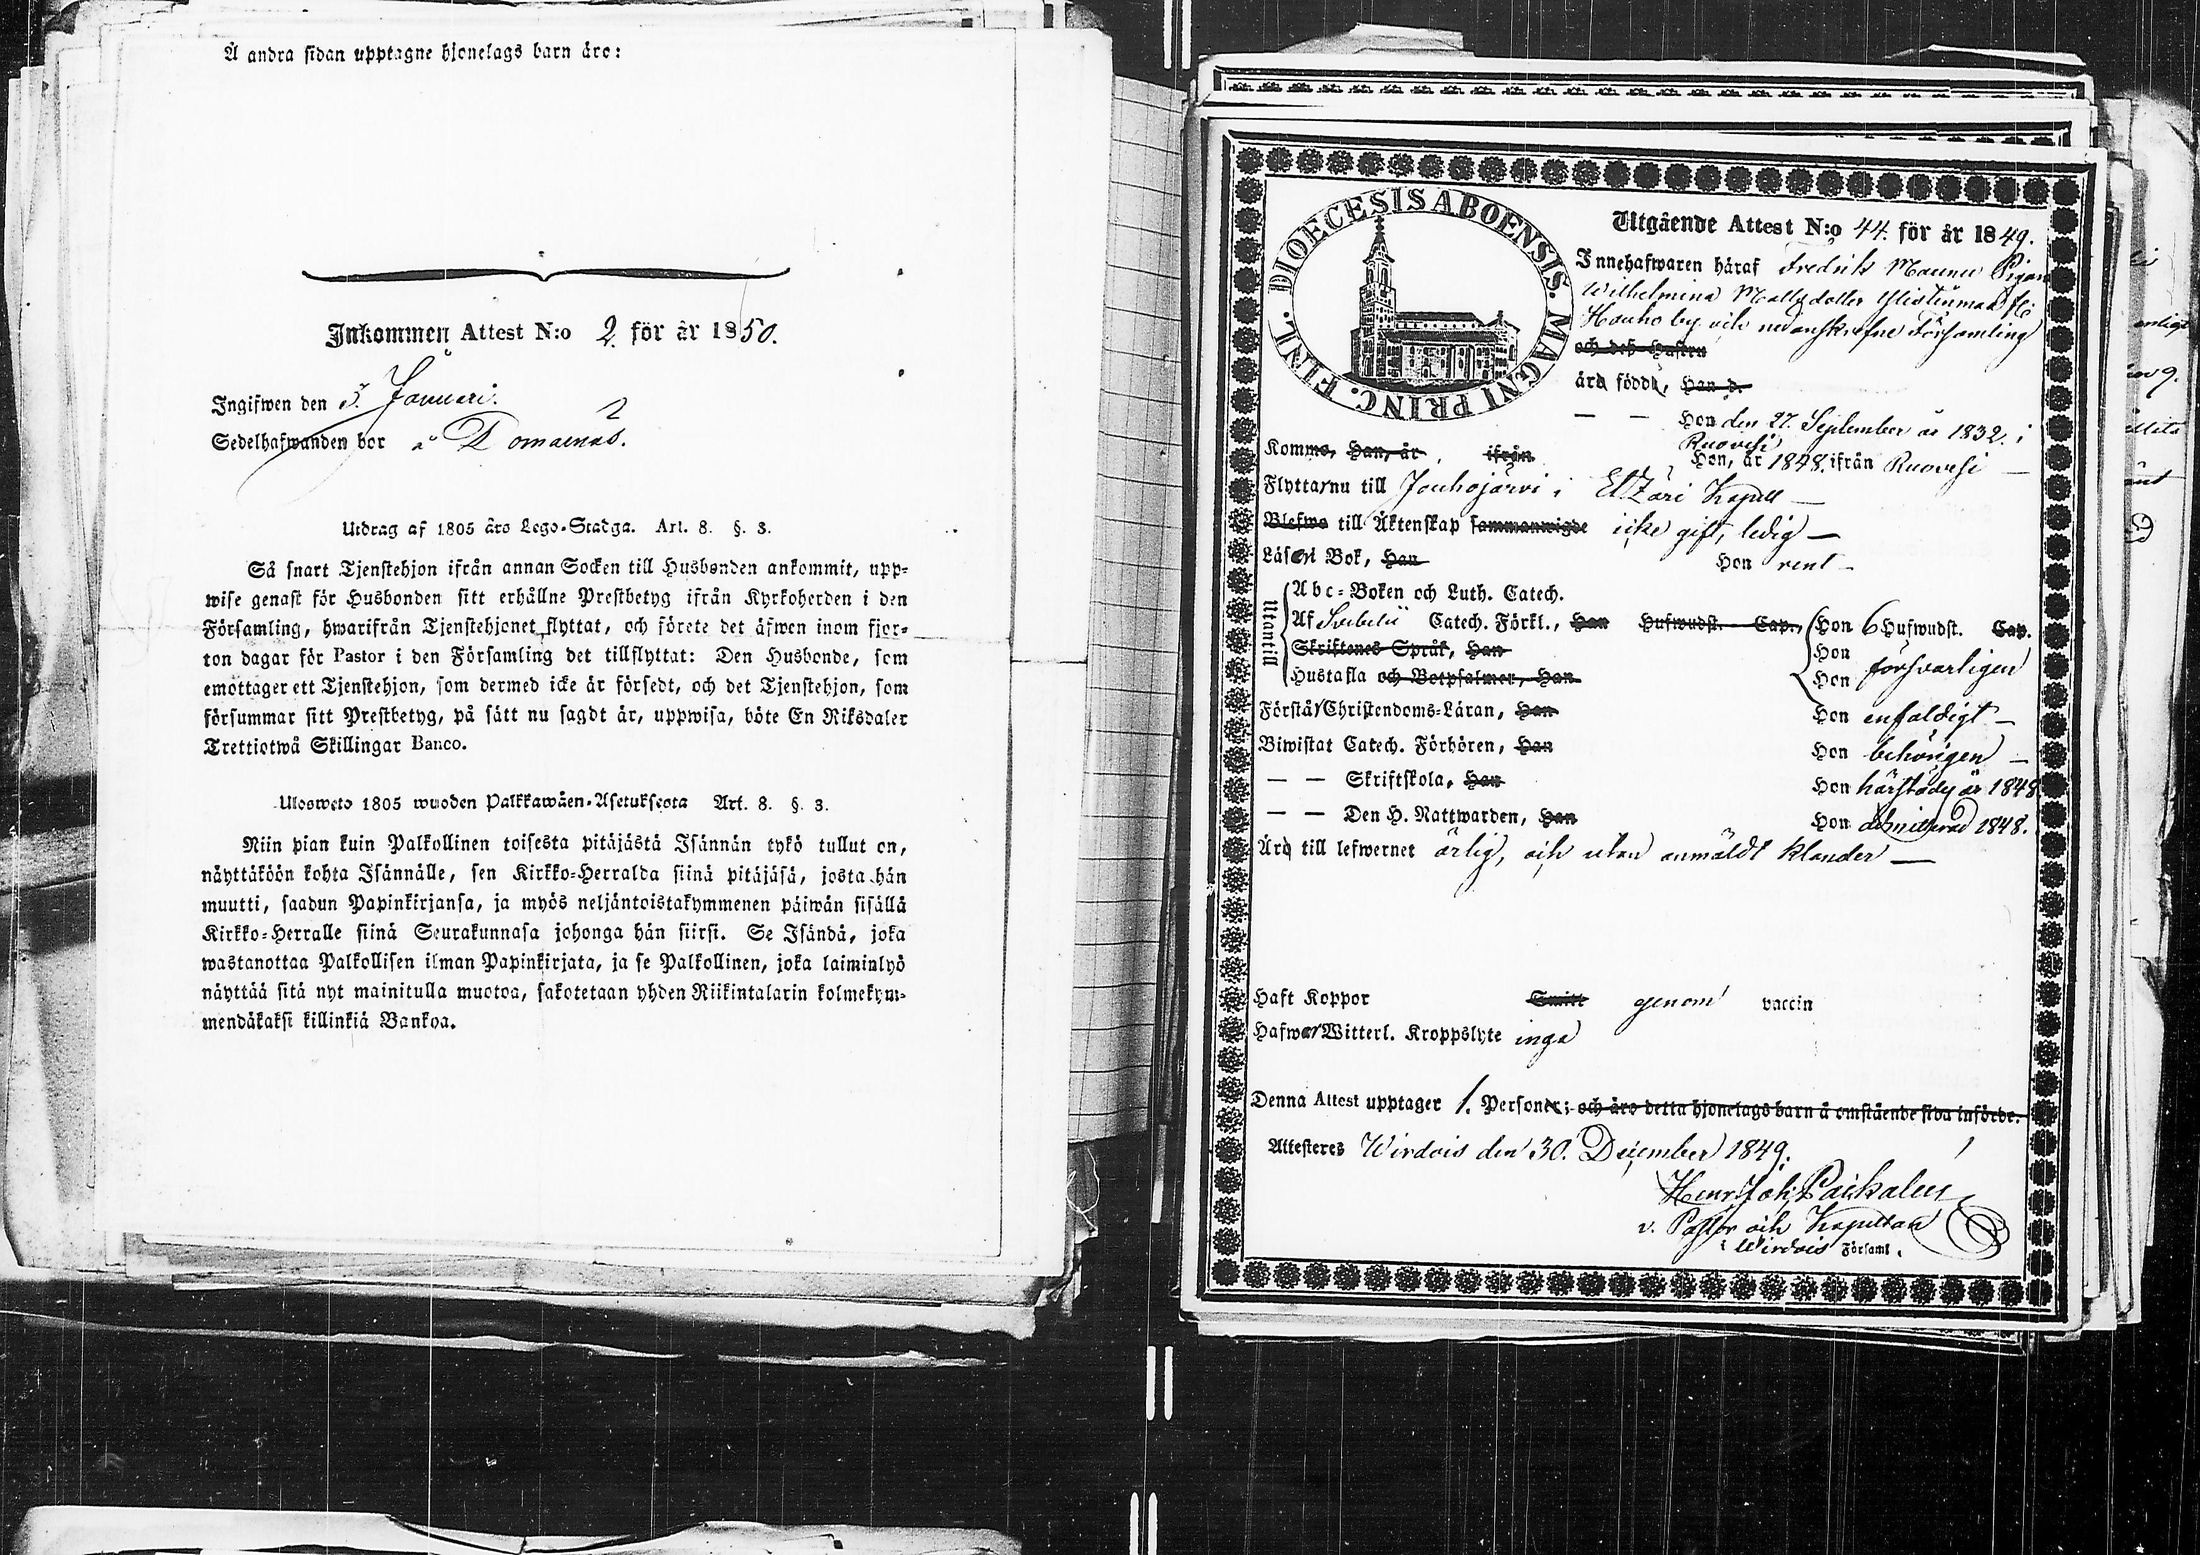 Å andra sidan upptagne hjonelags barn äro:
Inkommen Attest N:o 2. för år 1850.
Ingifwen den 5. Januari.
Sedelhafwanden bor å Domaenäs. 2
Utdrag af 1805 års Lego-Stadga. Art. 8. §. 3.
Så snart Tjenstehjon ifrån annan Socken till Husbonden ankommit, upp-
wise genast för Husbonden sitt erhållne Prestbetyg ifrån Kyrkoherden i den
Församling, hwarifrån Tjenstehjonet flyttat, och förete det äfwen inom fjor-
ton dagar för Pastor i den Församling det tillflyttat: Den Husbonde, som
emottager ett Tjenstehjon, som dermed icke är försedt, och det Tjenstehjon, som
försummar sitt Prestbetyg, på sätt nu sagdt är, uppwisa, böte En Riksdaler
Trettiotwå Skillingar Banco.
Ulosweto 1805 wuoden Palkkawäen-Asetuksesta Art. 8. §. 3.
Niin pian kuin Palkollinen toisesta pitäjästä Isännän tykö tullut on,
näyttäköön kohta Isännälle, sen Kirkko-Herralda siinä pitäjäsä, josta hän
muutti, saadun Papinkirjansa, ja myös neljäntoistakymmenen päiwän sisällä
Kirkko-Herralle siinä Seurakunnasa johonga hän siirsi. Se Isändä, joka
wastanottaa Palkollisen ilman Papinkirjata, ja se Palkollinen, joka laiminlyö
näyttää sitä nyt mainitulla muotoa, sakotetaan yhden Riikintalarin kolmekym-
mendäkaksi killinkiä Bankoa.
DIOECESIS ABOENSIS. MAGNI PRINC. FINL.
Utgående Attest N:o 44. för år 1849.
Innehafwaren häraf Fredrik Maunu Pigan
Wilhelmina Mattsdotter
Hauho by och nedanskrefne Församling
och deß Hustru
äro födde, Han d.
— — Hon den 27. September år 1832. i
Ruovesi
Komme, Han, år ifrån Hon, år 1848. ifrån Ruovesi —
Flyttar nu till Jouhojärvi i Etzäri Kapell —
Blefwo till Äktenskap sammanwigde icke gift, ledig —
Läser i Bok, Han Hon rent —
Utantill
Abc-Boken och Luth. Catech.
Af Svebelii Catech. Förkl., Han Hufwudst. Cap., Hon 6 Hufwudst. Cap.
Skriftenes Språk, Han Hon
Hustafla och Botpsalmer, Han Hon försvarligen
Förstår Christendoms-Läran, Han Hon enfaldigt —
Biwistat Catech. Förhören, Han Hon behörigen —
— — Skriftskola, Han Hon härstädes år 1848.
— — Den H. Nattwarden, Han Hon admitterad 1848.
Äro till lefwernet ärlig, och utan anmäldt klander —
Haft Koppor Smitt genom vaccin
Hafwer Witterl. Kroppslyte inga
Denna Attest upptager 1. Personer; och äro detta hjonelags barn å omstående sida införde.
Attesteres Wirdois den 30. December 1849.
v. Pastor och Kapellan
i Wirdois Församl.